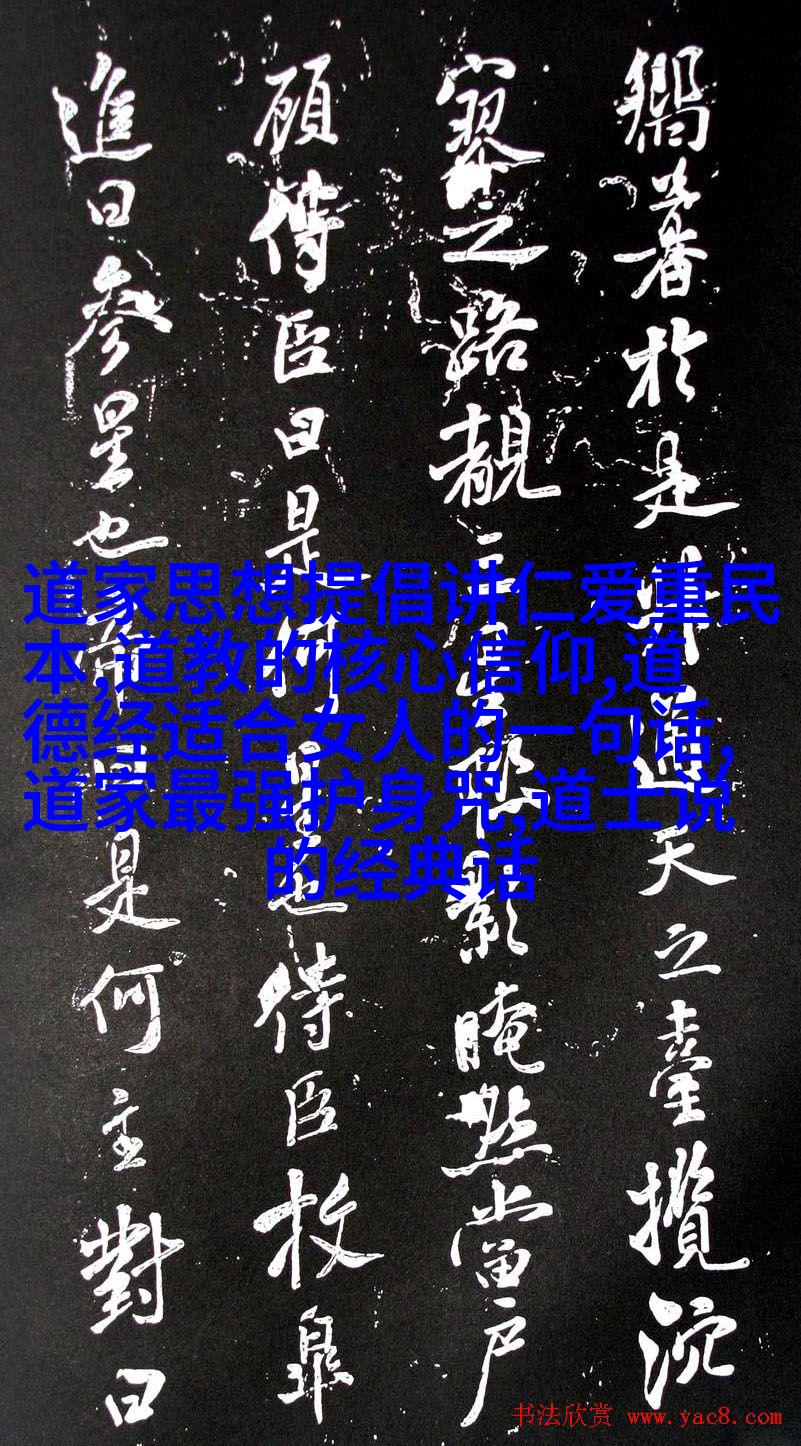 於是升通天之臺攬沉
寥之路覩三影晻然當戶
顧侍臣曰是何也侍臣枚皋
進曰參星也曰是何主對曰
道家思想提倡讲仁爱重民
本,道教的核心信仰,道
德经适合女人的一句话,
道家最强护身咒,道士说
的经典话
书法欣赏 www.yac8.com